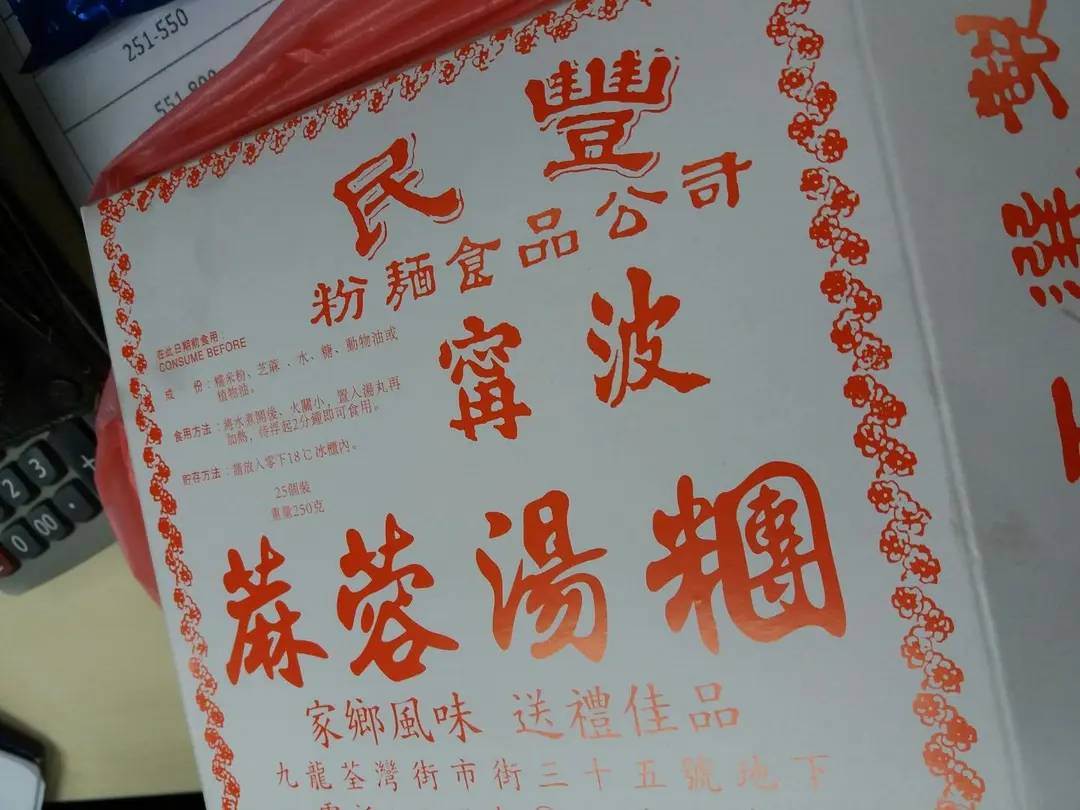 251-550
民豐
粉麵食品公司
寧波
在此日期前食用：
CONSUME BEFORE
成　份：糯米粉、芝蔴、水、糖、動物油或
植物油。
食用方法：將水煮開後、火關小，置入湯丸再
加熱，待浮起2分鐘即可食用。
貯存方法：請放入零下18℃冰櫃內。
25個裝
重量250克
蔴蓉湯糰
家鄉風味 送禮佳品
九龍荃灣街市街三十五號地下
3
+
2
0
00
.